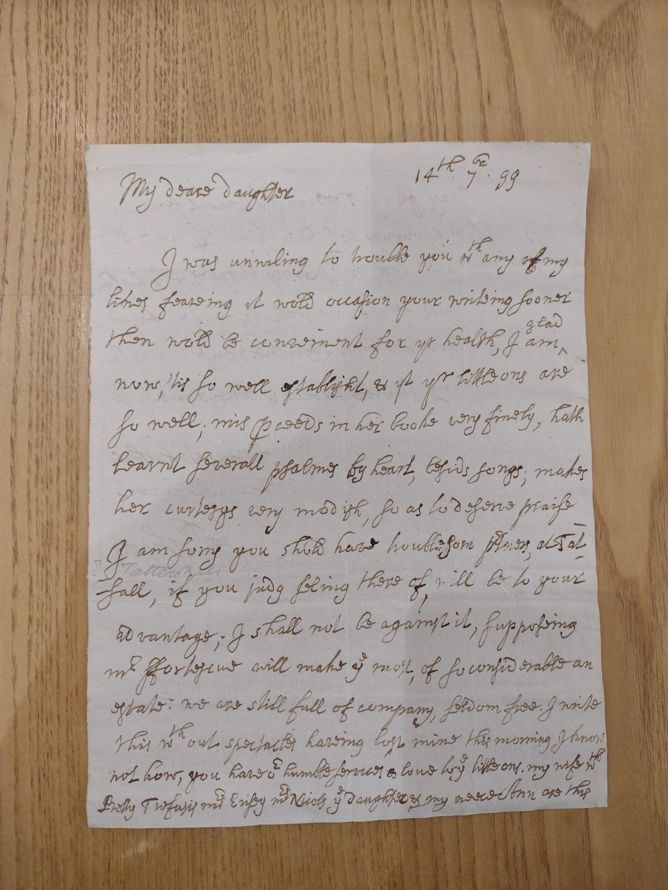 14th. 7br. 99
My deare daughter
I was unwiling to trouble you wth any of my
lines feareing it wold occasion your writeing sooner
then wold be convenient for yr health, I am glad
now, 'tis so well establisht, & yt yr little ons are
so well; mis proceeds in her booke very finely, hath
learnt severall psalmes by heart, besids songs; makes
her curtesys very modish, so as to deserve praise
I am sory you shold have troublesom ptners, at Tat-
Tatters
sall, if you judg seling there of, will be to your
advantage; I shall not be against it, supposeing
mr ffortescue will make ye most, of so considerable an
estate: we are still full of company, seldom free. I write
this wth out spectacles haveing lost mine this morning I know
not how, you have or humble services & love to ye little ons. my wife wth
Pretty Trefusis mrs Erisey mrs Nicols ye daughter & my neece Ann are this